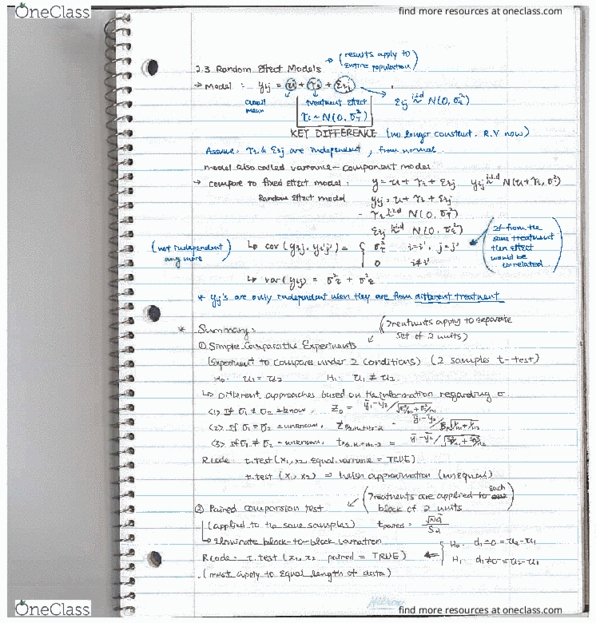 OneClass
find more resources at oneclass.com
(results apply to
entire population)
2.3 Random Effect Models
→ Model: yij = u + τi + εij
overall
mean
treatment effect
τi ~ N(0, στ²)
εij iid~ N(0, σε²)
KEY DIFFERENCE (no longer constant. R.V now)
Assume τi & εij are independent, from normal
model also called variance-component model
→ compare to fixed effect model: y = u + τi + εij yij iid~ N(u+τi, σ²)
Random effect model yij = u + τi + εij
τi iid~ N(0, στ²)
εij iid~ N(0, σε²)
(not independent
any more)
↳ cov(yij, yi'j') = { στ² i=i', j≠j'
0 i≠i'
(If from the
same treatment
then effect
would be
correlated)
↳ var(yij) = στ² + σε²
* yij's are only independent when they are from different treatment
* Summary:
(Treatments apply to separate
set of 2 units)
① Simple Comparative Experiments
(Experiment to compare under 2 conditions) (2 samples t-test)
H0: u1 = u2 H1: u1 ≠ u2
↳ Different approaches based on the information regarding σ
<1> If σ1 σ2 = know, Z0 =
<2> If σ1 = σ2 = unknown,
<3> If σ1 ≠ σ2 = unknown,
Rcode: t.test(x1, x2 equal.variance = TRUE)
t.test(x1, x2) ⇒ Welch approximation (unequal)
② Paired comparsion test
(Treatments are applied to each
block of 2 units)
(applied to the same samples)
→ Eliminate block-to-block variation
Rcode: t.test(x1, x2 paired = TRUE)
(must apply to equal length of data)
OneClass
find more resources at oneclass.com